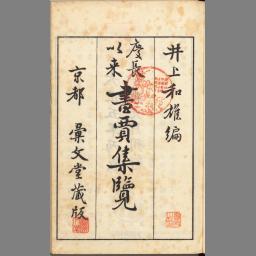 井上和雄編
慶長以来
書賈集覧
京都 彙文堂蔵版